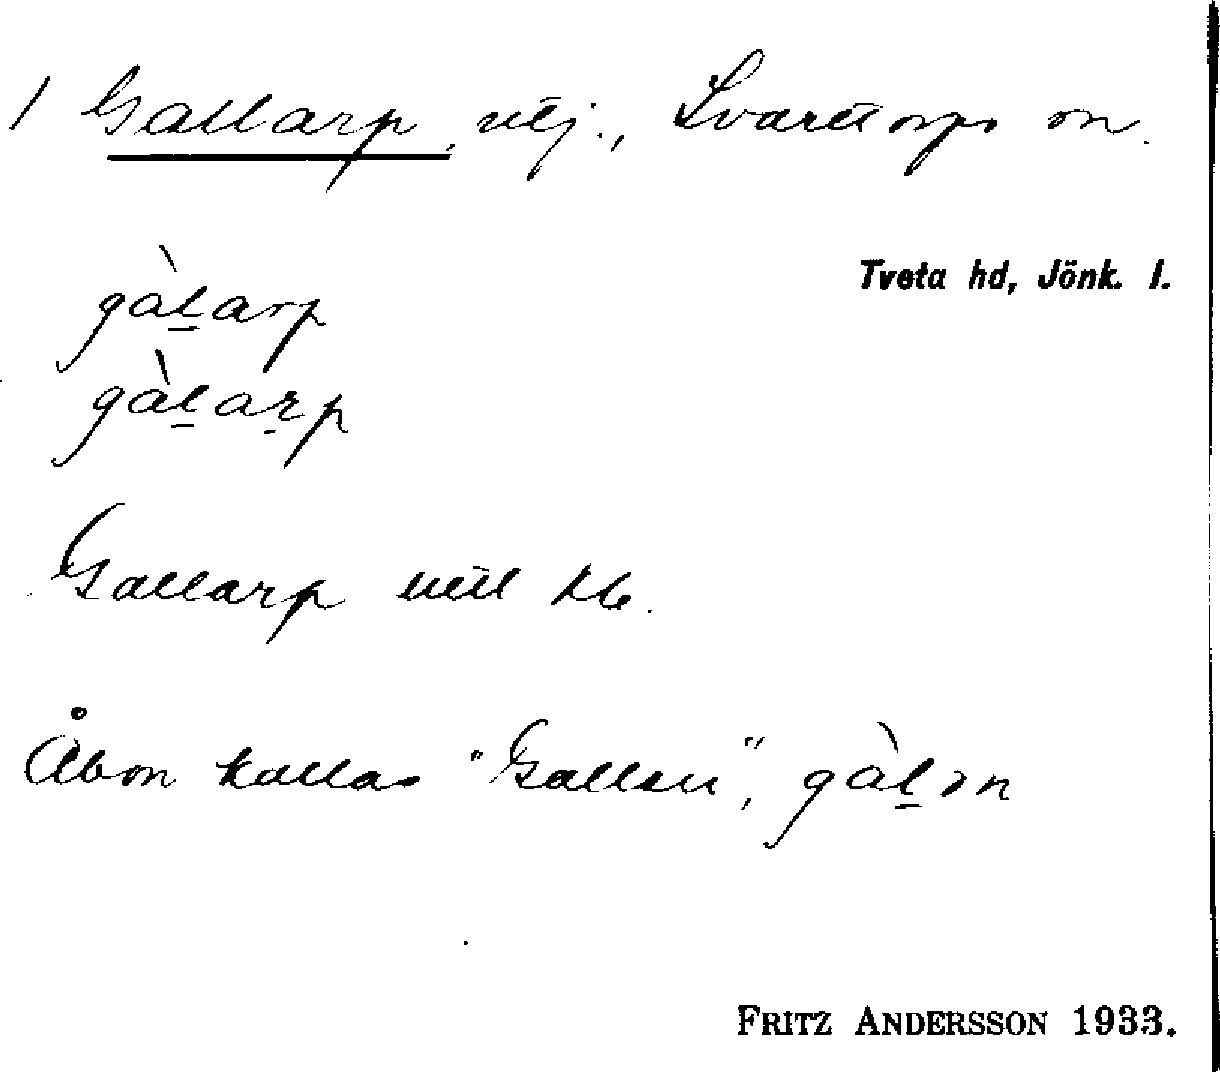 1 Gallarp, utj., Svarttorps sn.
Tveta hd, Jönk. l.
gàl̲arp
gàl̲ar̲p
Gallarp
Åbon kallas "Gallen", gàl̲ən
FRITZ ANDERSSON 1933.